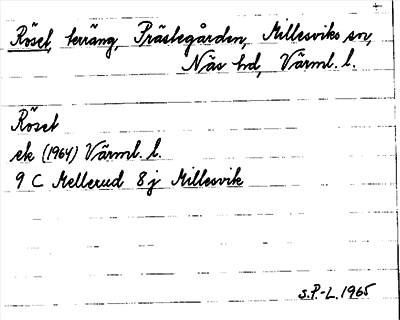 Röset, terräng, Prästegården, Millesviks sn,
Näs hd, Värml. l.
Röset
ek (1964) Värml. l.
9 C Mellerud 8 j Millesvik
S.P.-L. 1965